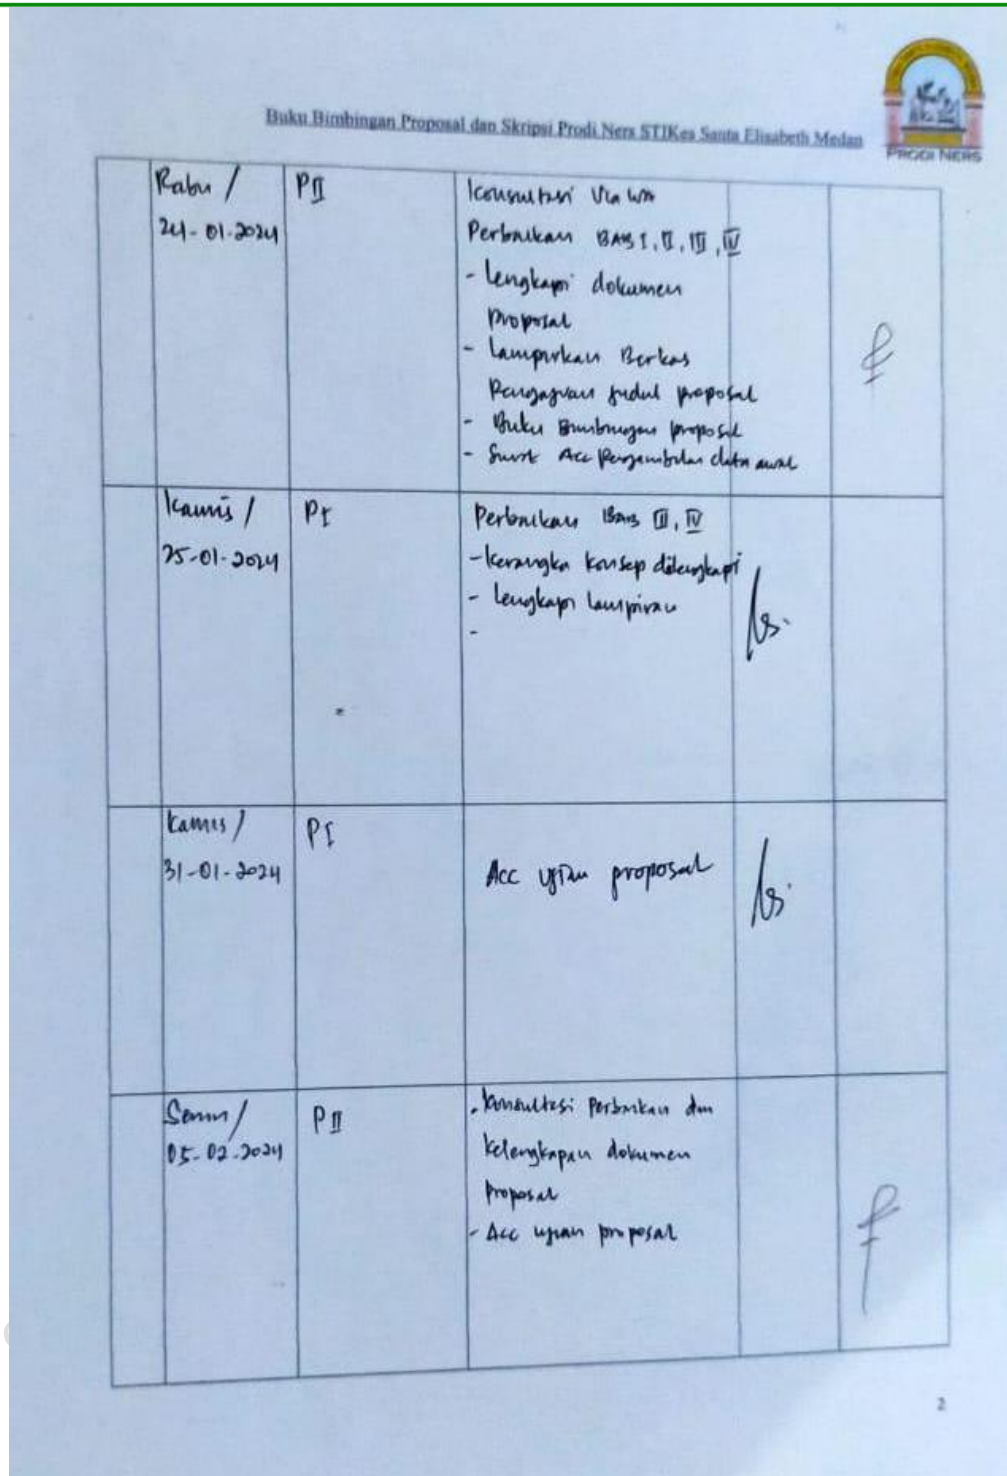 Buku Bimbingan Proposal dan Skripsi Prodi Ners STIKes Santa Elisabeth Medan
PRODI NERS
Rabu /
24-01-2024
PII
Konsultasi Via WA
Perbaikan BAB I, II, III, IV
- Lengkapi dokumen
proposal
- Lampirkan Berkas
Pengajuan judul proposal
- Buku Bimbingan proposal
- Surat Acc Pengambilan data awal
Kamis /
25-01-2024
PI
Perbaikan Bab III, IV
- Kerangka konsep dilengkapi
- Lengkapi lampiran
-
Kamis /
31-01-2024
PI
Acc ujian proposal
Senin /
05-02-2024
PII
- Konsultasi Perbaikan dan
kelengkapan dokumen
proposal
- Acc ujian proposal
2